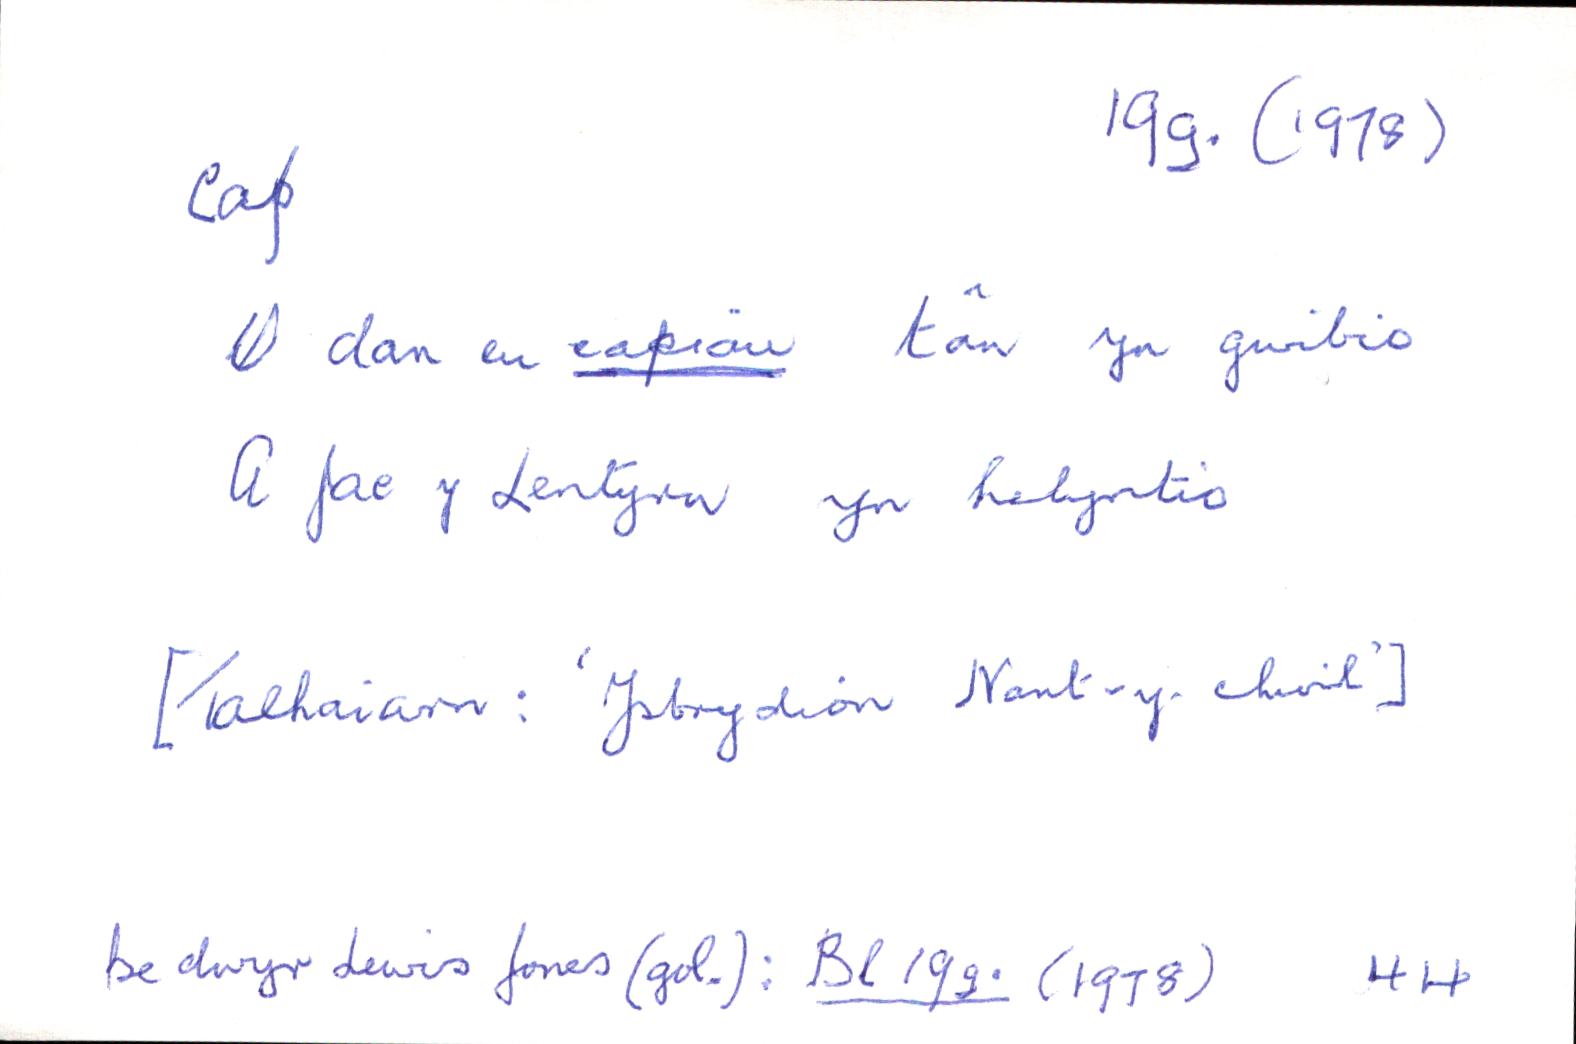 19g. (1978)
Cap
O dan eu capiau tân yn gwibio
A Jac y Lentyrn yn helyntio
[Talhaiarn: 'Ysbrydion Nant-y-chwil']
Bedwyr Lewis Jones (gol.): Bl 19g. (1978) 44